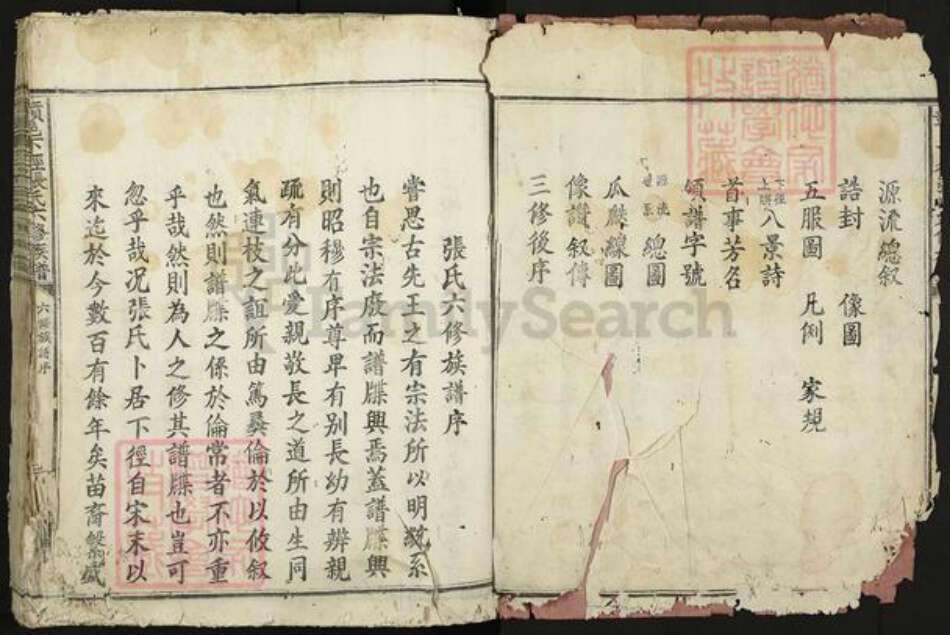 源流總叙
誥封 像圖
五服圖 凡例 家規
下徑上联八景詩
首事芳名
領譜字號
源流世系總圖
瓜瓞線圖
像讃叙傳
三修後序
張氏六修族譜序
嘗思古先王之有宗法所以明統系
也自宗法廢而譜牒興焉蓋譜牒興
則昭穆有序尊卑有別長幼有辨親
疏有分此愛親敬長之道所由生同
氣連枝之誼所由篤彛倫於以攸叙
也然則譜牒之係於倫常者不亦重
乎哉然則為人之修其譜牒也豈可
忽乎哉况張氏卜居下徑自宋末以
來迄於今數百有餘年矣苗裔繁盛
六修族譜序
FamilySearch